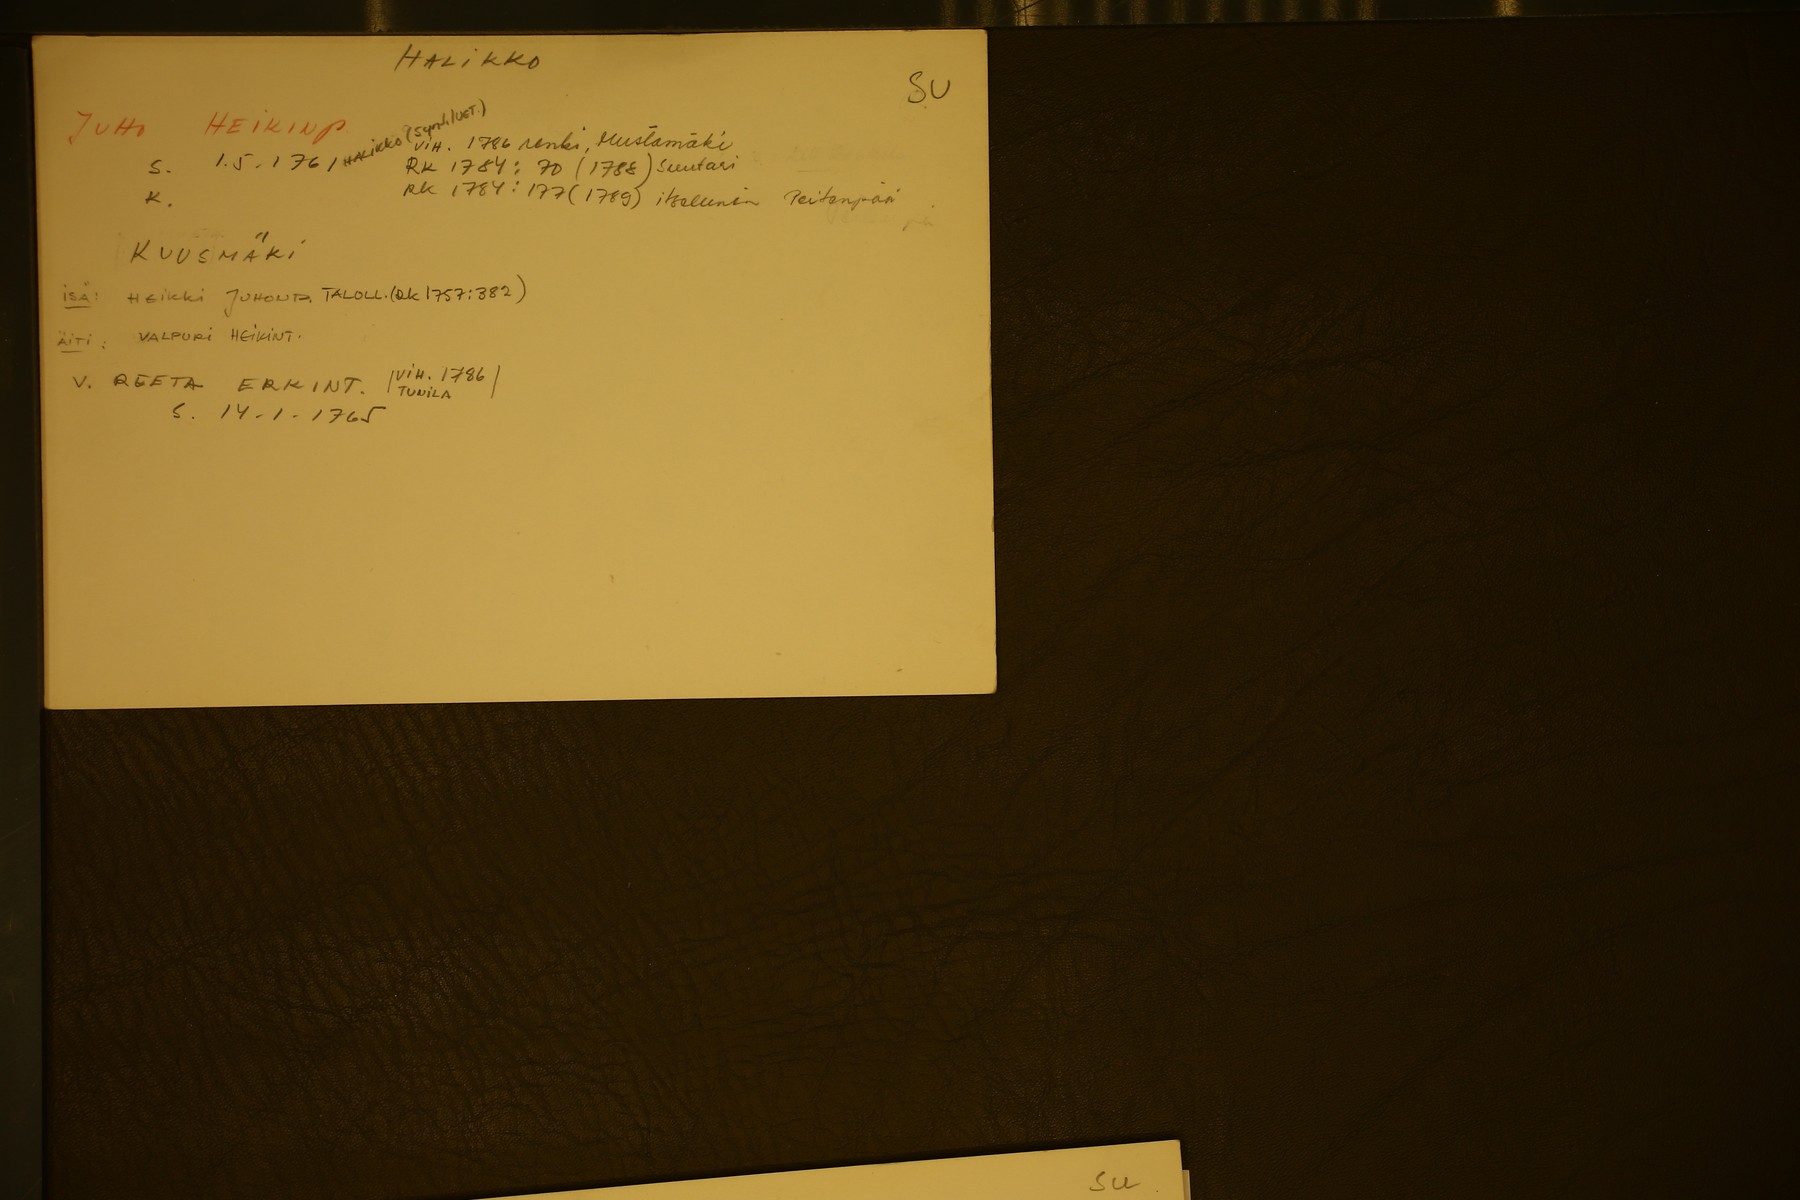 HALIKKO
SU
JUHO HEIKINP.
S. 1.5.1761 HALIKKO (synt.luet.) VIH. 1786 renki, Mustamäki
RK 1784: 70 (1788) Suutari
K. RK 1784: 177 (1789) itsellinen
KUUSMÄKI
ISÄ: HEIKKI JUHONP. TALOLL. (RK 1757:382)
ÄITI: VALPURI HEIKINT.
V. REETA ERKINT. |VIH. 1786
TUNILA|
S. 14.1.1765
SU